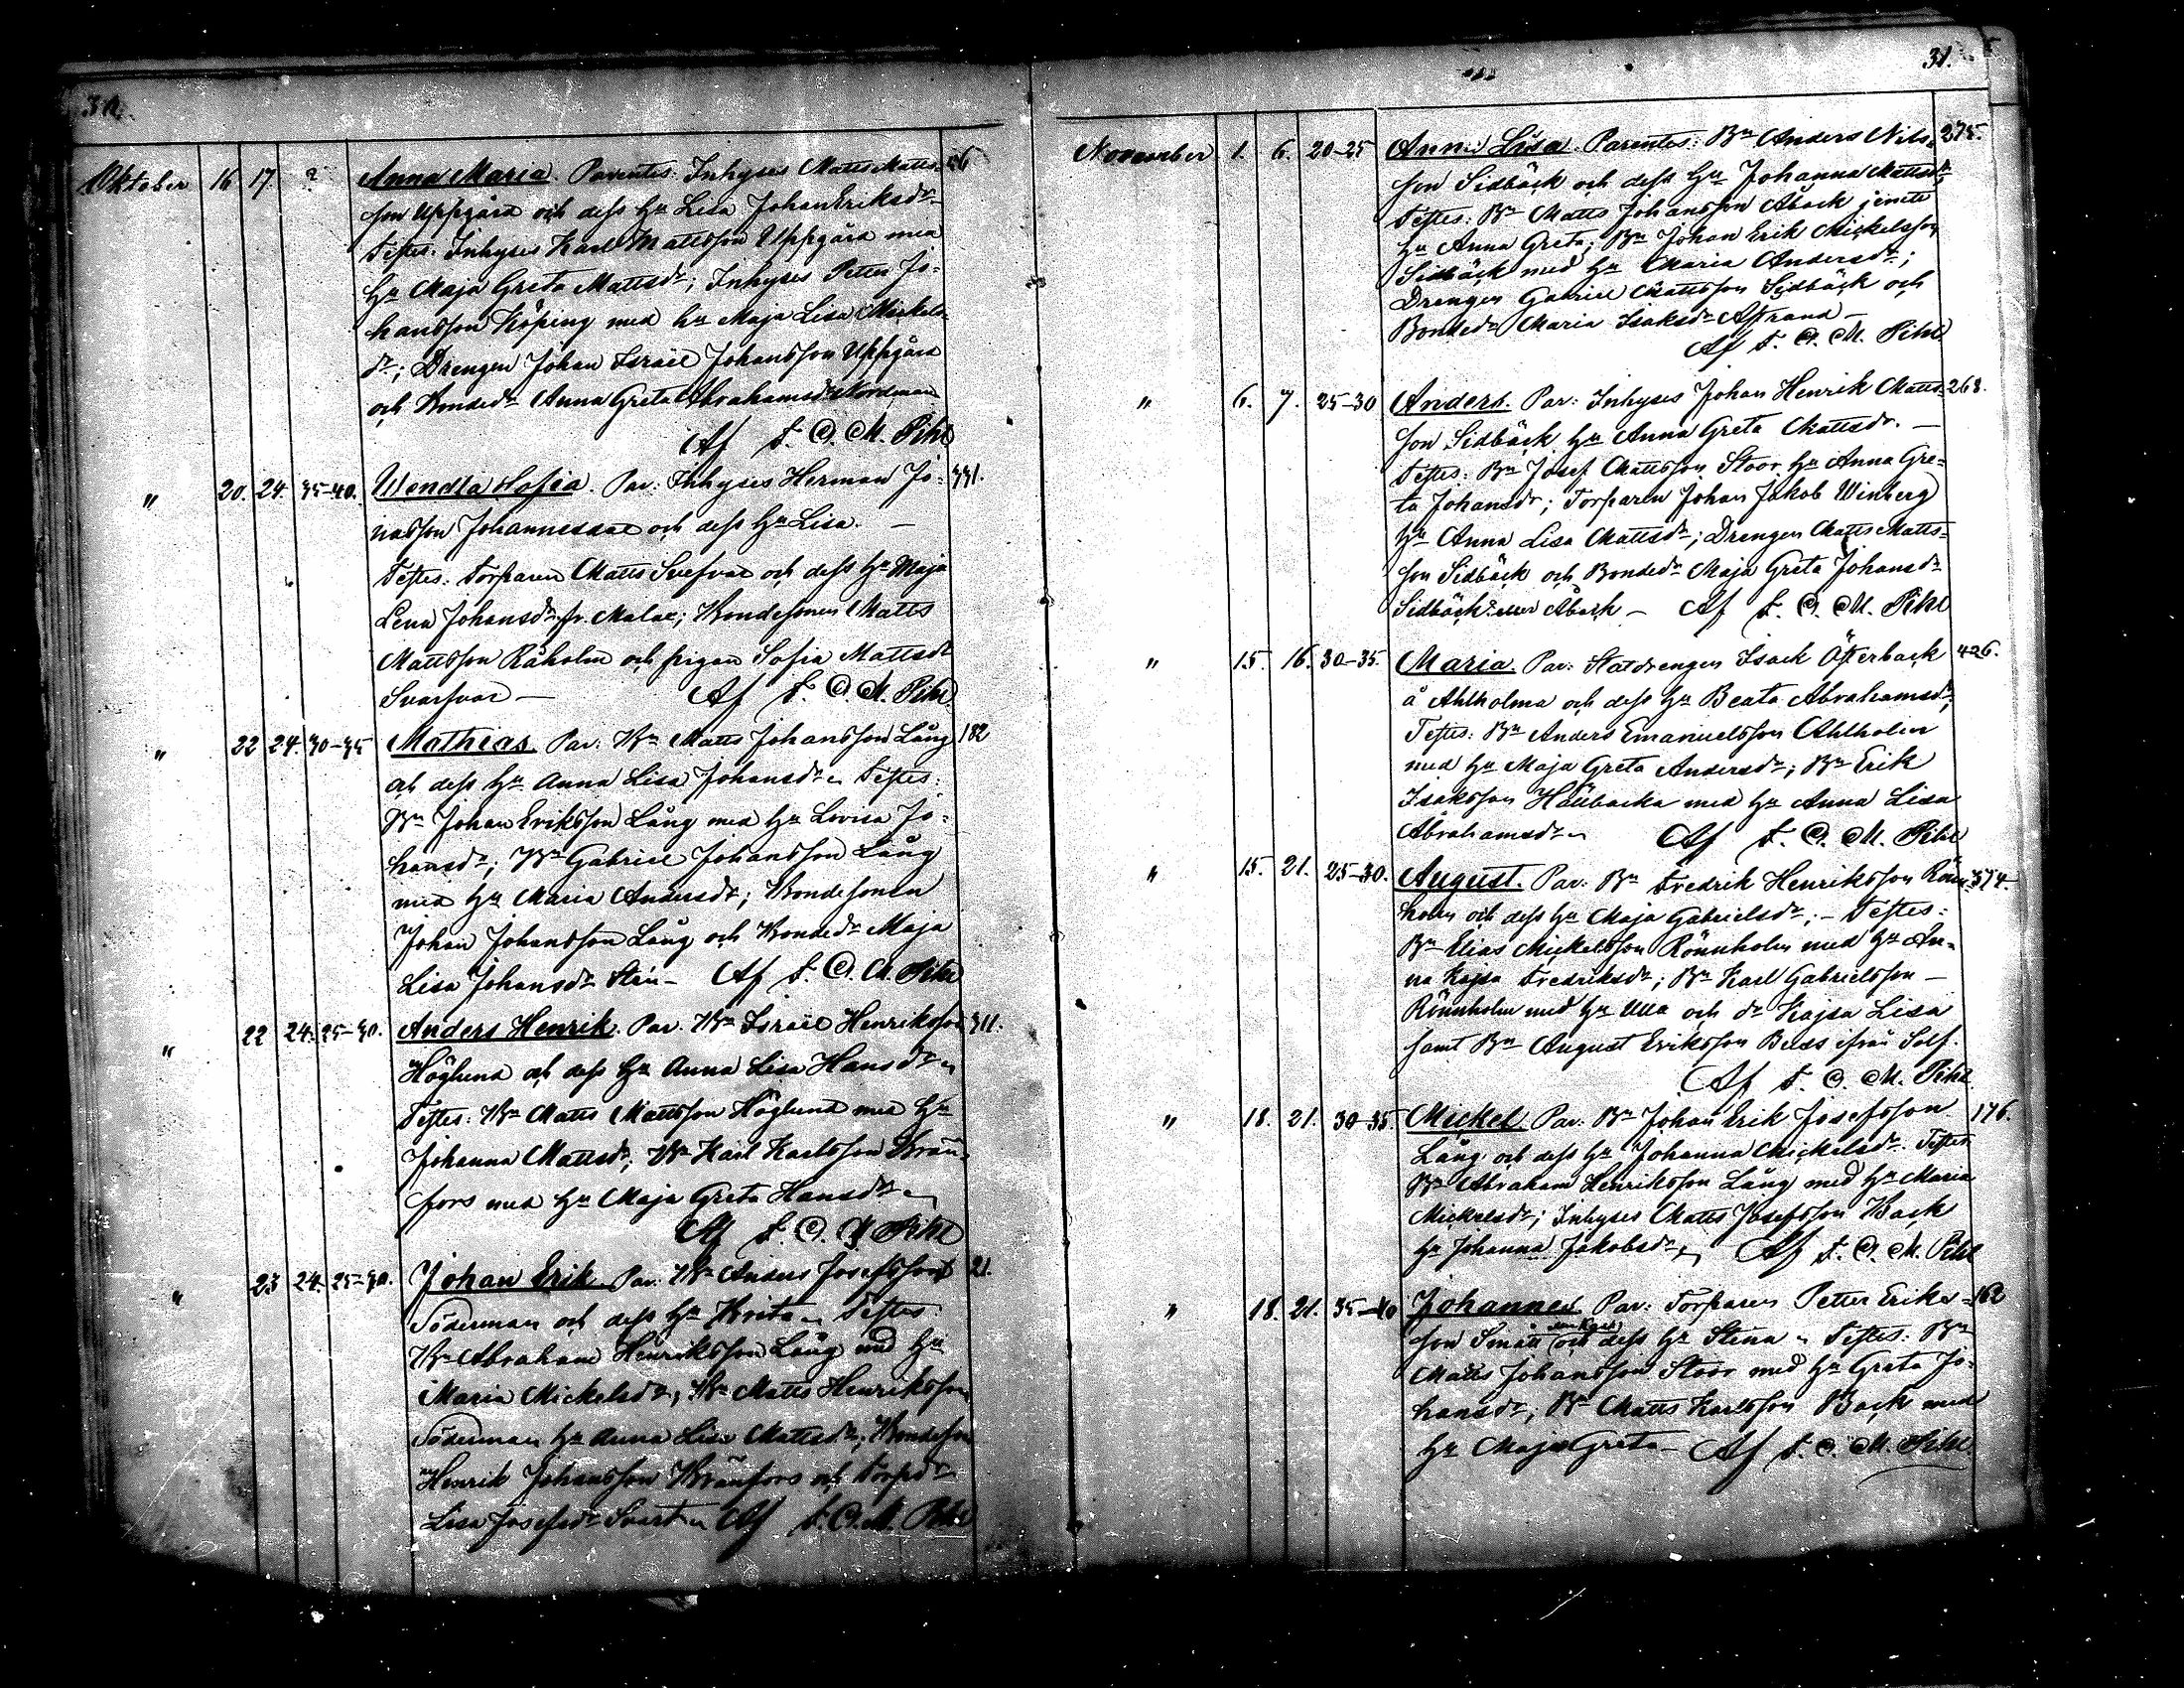 30.
Oktober 16 17. ? Anna Maria. Parentes: Inhyses Matts Matts- 56
son Uppgård och dess hu Lisa Johan Eriksdr
Testes: Inhyses Karl Mattsson Uppgård med
hu Maja Greta Mattsdr; Inhyses Petter Jo-
hansson Köping med hu Maja Lisa Mickels-
dr; Drengen Johan Israel Johansson Uppgård
och Bondedr Anna Greta Abrahamsdr Nordman
Af F. O. M. Pihl
" 20. 24. 35-40. Wendla Sofia. Par: Inhyses Herman Jo- 331.
nasson Johannesdal och dess hu Lisa. —
Testes: Torparen Matts och dess hu Maja
Lena Johansdr fr. Malax; Bondesonen Matts
Mattsson Råholm och pigan Sofia Mattsdr
Svarfvar — Af F. O. M. Pihl.
" 22 24. 30-35 Mathias. Par: Bn Matts Johansson Lång 182
och dess hu Anna Lisa Johansdr. Testes:
Bn Johan Eriksson Lång med hu Lovisa Jo-
hansdr; Bn Gabriel Johansson Lång
med hu Maria Andersdr; Bondesonen
Johan Johansson Lång och Bondedr Maja
Lisa Johansdr — Af F. O. M. Pihl
" 22 24. 25-30. Anders Henrik. Par. Bn Israel Henriksson 311.
Höglund och dess hu Anna Lisa Hansdr
Testes: Bn Matts Mattsson Höglund med hu
Johanna Mattsdr; Bn Karl Karlsson Brån-
fors med hu Maja Greta Hansdr
Af F. O. M. Pihl
" 23 24. 25-30. Johan Erik. Par: Bn Anders Josefsson 21.
Söderman och dess hu Brita. Testes:
Bn Abraham Henriksson Lång med hu
Maria Mickelsdr; Bn Matts Henriksson
Söderman hu Anna Lisa Mattsdr; Bondeson
Henrik Johansson Brånfors och Torpdr
Lisa Josefsdr Svart Af F. O. M. Pihl
31.
November 1. 6. 20-25 Anna Lisa. Parentes: Bn Anders Nils- 275.
son Sidbäck och dess hu Johanna Mattsdr
Testes: Bn Matts Johansson Åback jemte
hu Anna Greta; Bn Johan Erik Mickelsson
Sidbäck med hu Maria Andersdr;
Drengen Gabriel Mattsson Sidbäck och
Bondedr Maria Isaksdr Åstrand —
Af F. O. M. Pihl
" 6. 7. 25-30 Anders. Par: Inhyses Johan Henrik Matts- 268.
son Sidbäck hu Anna Greta Mattsdr. —
Testes: Bn Josef Mattsson Stoor hu Anna Gre-
ta Johansdr; Torparen Johan Jakob Winberg
hu Anna Lisa Mattsdr; Drengen Matts Matts-
son Sidbäck och Bondedr Maja Greta Johansdr
Sidbäck eller Åback — Af F. O. M. Pihl
" 15. 16. 30-35. Maria. Par: Statdrengen Isack Österback 426.
å Ahlholma och dess hu Beata Abrahamsdr;
Testes: Bn Anders Emanuelsson Ahlholm
med hu Maja Greta Andersdr; Bn Erik
Isaksson Hällbacka med hu Anna Lisa
Abrahamsdr Af F. O. M. Pihl
" 15. 21. 25-30. August. Par: Bn Fredrik Henriksson Rönn- 374.
holm och dess hu Maja Gabrielsdr; — Testes:
Bn Elias Mickelsson Rönnholm med hu An-
na Kajsa Fredriksdr; Bn Karl Gabrielsson —
Rönnholm med hu Ulla och dr Kajsa Lisa
samt Bn August Eriksson Buss ifrån Solf.
Af F. O. M. Pihl.
" 18. 21. 30-35. Mickel. Par: Bn Johan Erik Josefsson 176.
Lång och dess hu Johanna Mickelsdr. Testes
Bn Abraham Henriksson Lång med hu Maria
Mickelsdr; Inhyses Matts Josefsson Back
hu Johanna Jakobsdr Af F. O. M. Pihl
" 18. 21. 35-40 Johannes. Par: Torparen Petter Eriks- 162
son Smått och dess hu Stina. Testes: Bn
Matts Johansson Stoor med hu Greta Jo-
hansdr; Bn Matts Karlsson Back med
hu Maja Greta — Af F. O. M. Pihl